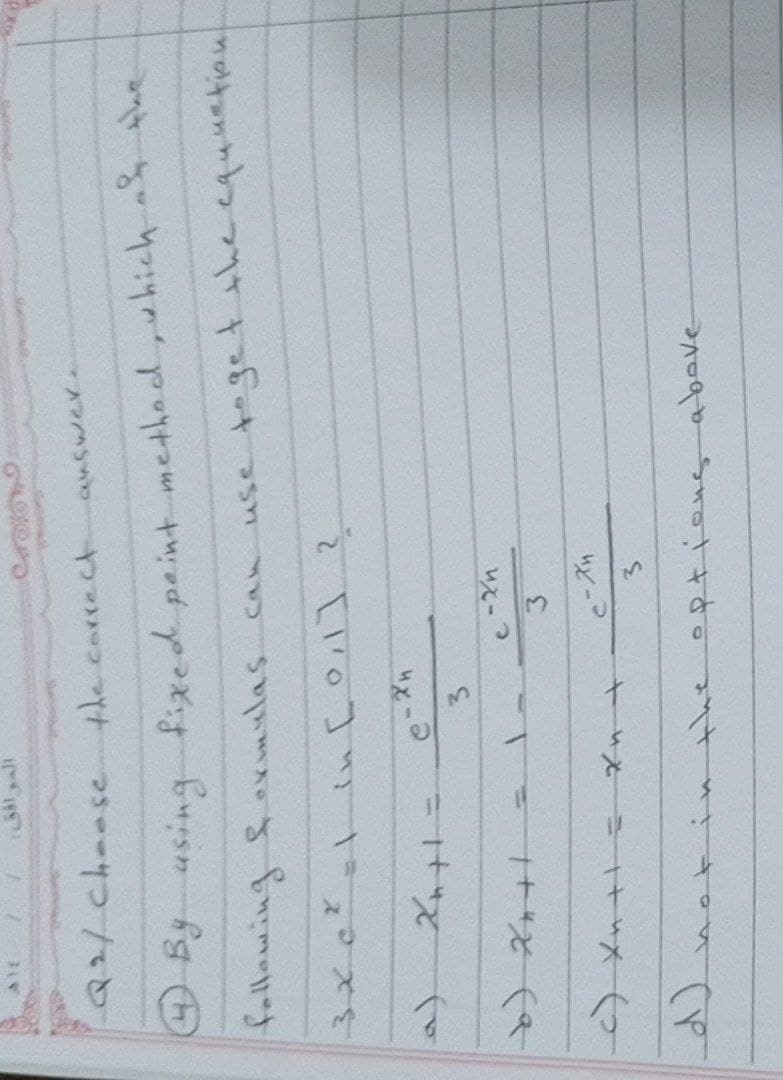 الموافق: / /
Q2/ choose the correct answer.
④ By using fixed point method, which of the
following formulas can use to get the equation
3xe^x = 1 in [0,1] ?
a) xₙ+1 = e^-xₙ / 3
b) xₙ+1 = 1 - e^-xₙ / 3
c) xₙ+1 = xₙ + e^-xₙ / 3
d) not in the options above